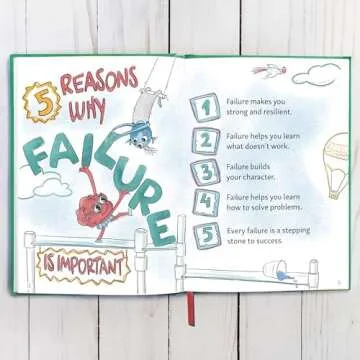 5 REASONS
WHY
FAILURE
IS IMPORTANT
1 Failure makes you
strong and resilient.
2 Failure helps you learn
what doesn't work.
3 Failure builds
your character.
4 Failure helps you learn
how to solve problems.
5 Every failure is a stepping
stone to success.